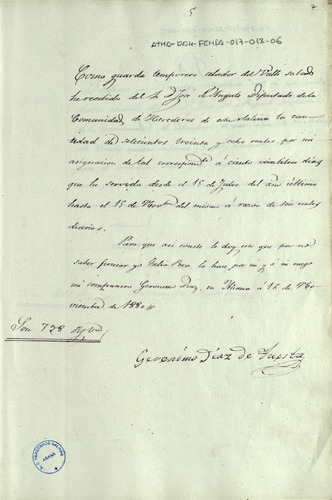 5
7
ATHA-DAH-FCHIA-017-012-06
Como guarda temporero celador del Valle salado
he recibido del Sr. D. José de Angulo Diputado de la
Comunidad de Herederos de esta Salina la can-
tidad de setecientos treinta y ocho reales por mi
asignacion de tal correspondte. á ciento veintitres dias
que he servido desde el 15 de Julio del año último
hasta el 15 de Novbre. del mismo á razon de seis reales
diarios.
Para que asi conste lo doy, sin que por no
saber firmar yo Pedro Pero, lo hace por mi y á mi ruego
mi compañero Geronimo Diaz, en Añana á 16 de No-
viembre de 1880.
Son 738 rs. vn.
Geronimo Diaz de Tuesta
ANANA